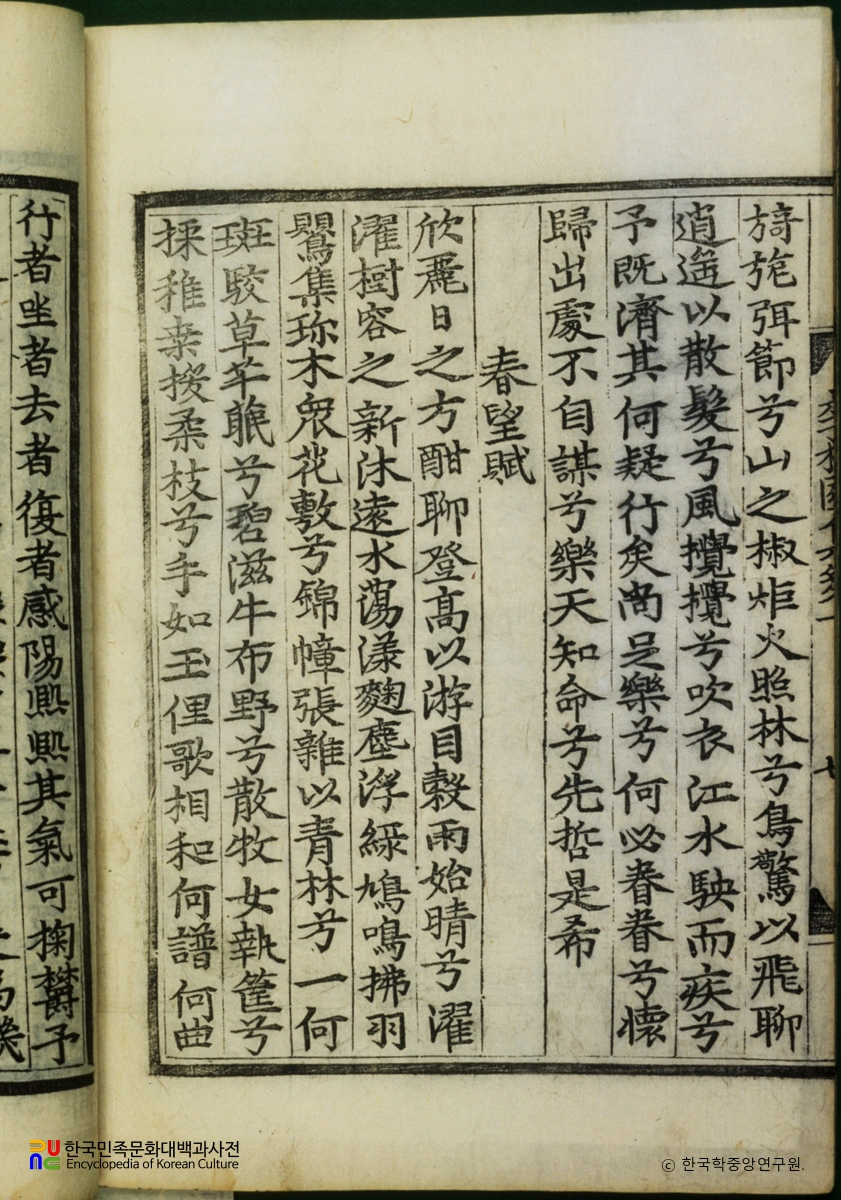 旖旎弭節兮山之椒炬火照林兮鳥驚以飛聊
逍遙以散髮兮風攪攪兮吹衣江水駚而疾兮
予既濟其何疑行矣尚足樂兮何必眷眷兮懷
歸出處不自謀兮樂天知命兮先哲是希
春望賦
欣麗日之方酣聊登高以游目穀雨始晴兮濯
濯樹容之新沐遠水蕩漾麴塵浮綠鳩鳴拂羽
鸎集珎木衆花敷兮錦幛張雜以青林兮一何
斑駮草芊眠兮碧滋牛布野兮散牧女執筐兮
採稚桒援柔枝兮手如玉俚歌相和何譜何曲
行者坐者去者復者感陽熙熙其氣可掬欝予
한국민족문화대백과사전
Encyclopedia of Korean Culture
ⓒ 한국학중앙연구원.